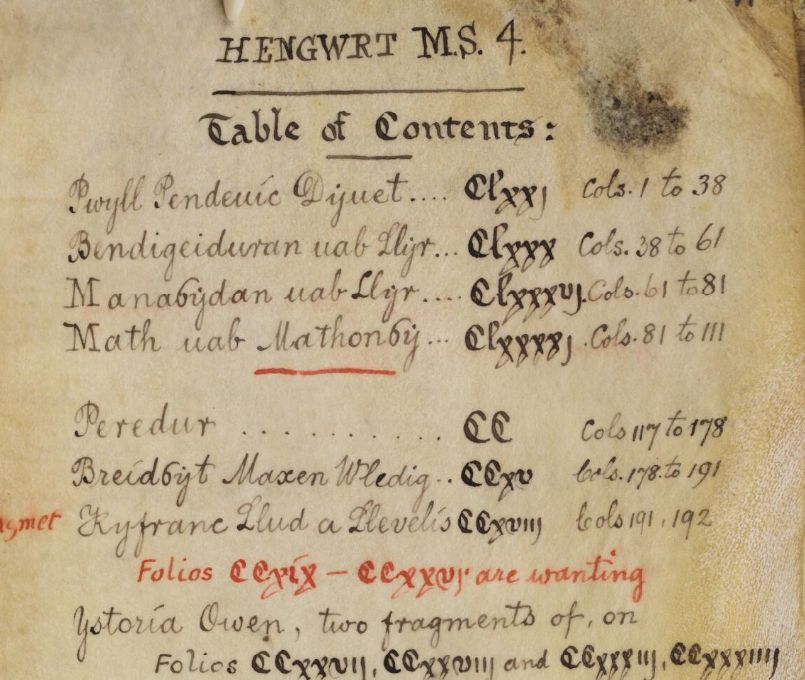 HENGWRT M.S. 4.
Table of Contents:
Pwyll Pendeuic Dyuet.... Clxxj Cols. 1 to 38
Bendigeiduran uab Llyr... Clxxx Cols. 38 to 61
Manaỽydan uab Llyr.... Clxxxvj. Cols. 61 to 81
Math uab Mathonỽy... Clxxxxj. Cols. 81 to 111
Peredur .......... CC Cols 117 to 178
Breidỽyt Maxen Wledig.. CCxv Cols. 178 to 191
Kyfranc Llud a Llevelis CCxviij Cols 191, 192
Folios CCxix – CCxxvj are wanting
Ystoria Owen, two fragments of, on
Folios CCxxvij, CCxxviij and CCxxxiij, CCxxxiiij